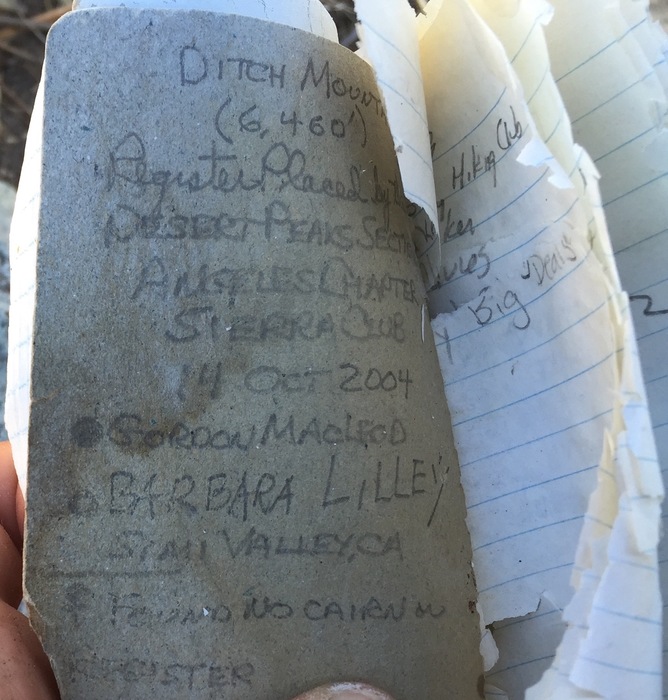 DITCH MOUNT
(6,460')
Register Placed by
DESERT PEAKS SECTI
ANGELES CHAPTER
SIERRA CLUB
14 OCT 2004
GORDON MACLEOD
BARBARA LILLEY
SIMI VALLEY, CA
FOUND NO CAIRN
REGISTER
Hiking Club
Big "Deals"
2